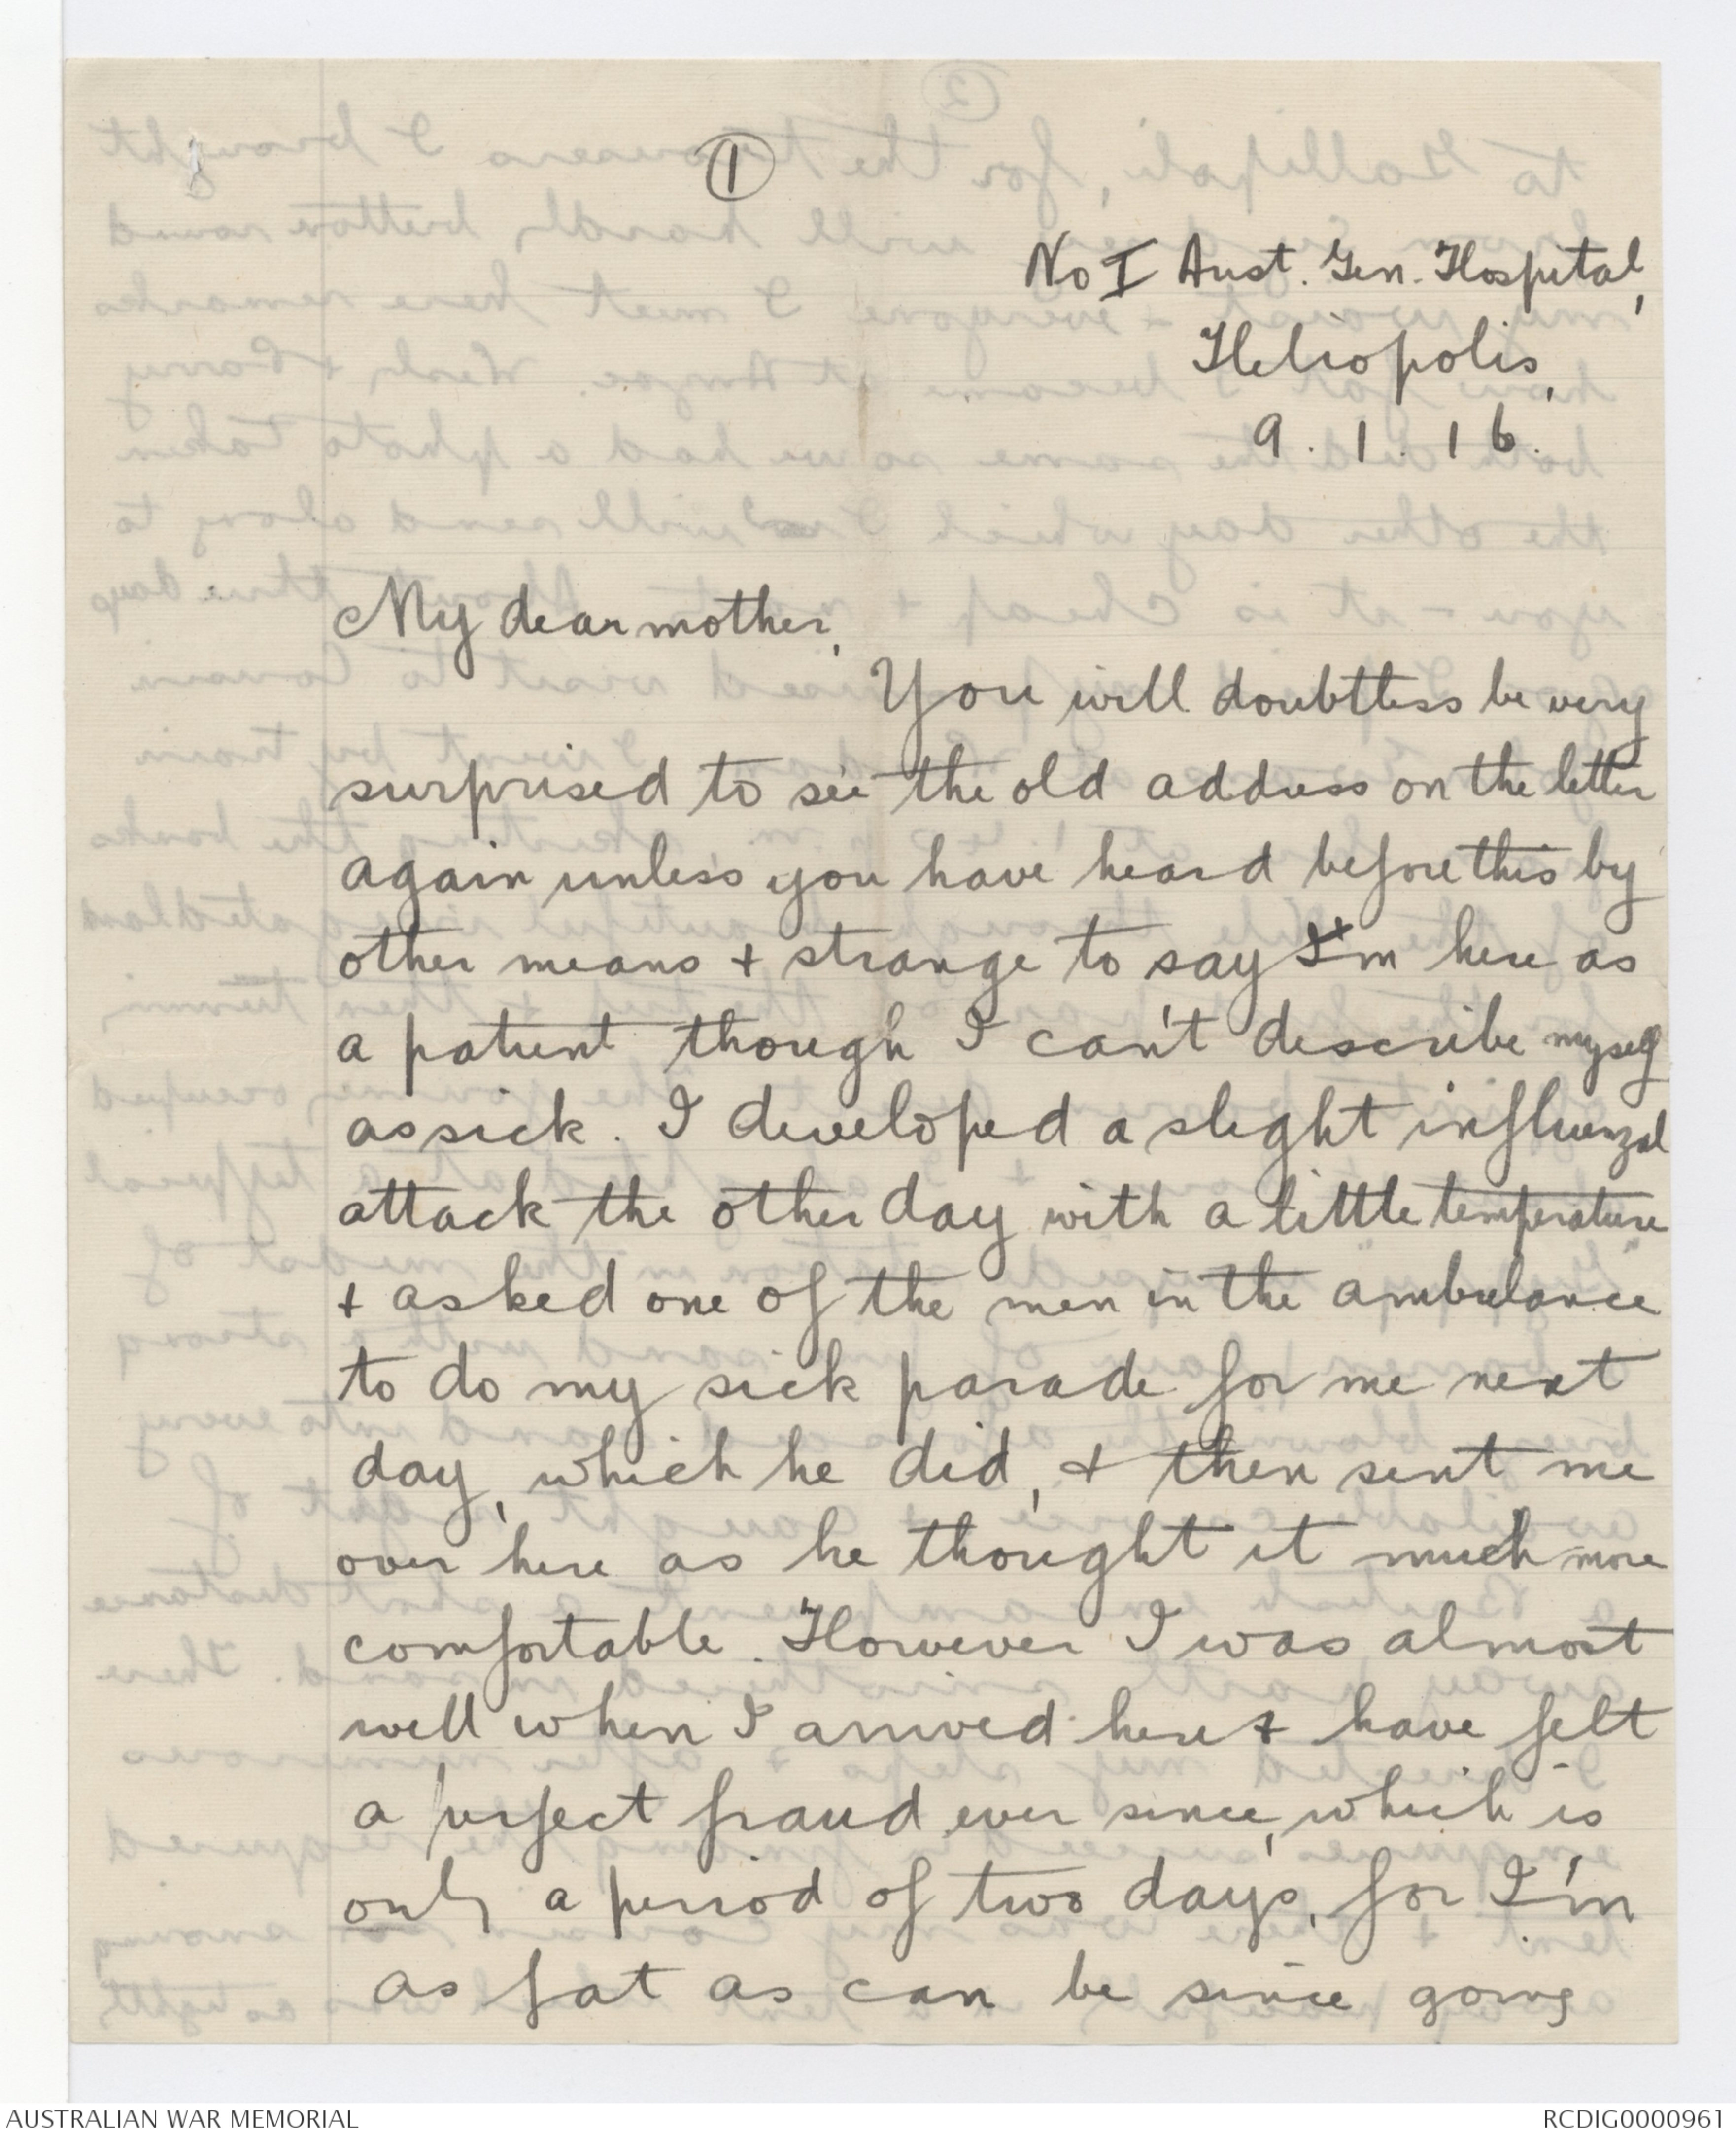 1
No I Aust. Gen. Hospital,
Heliopolis,
9.1.16.
My dear mother,
You will doubtless be very
surprised to see the old address on the letter
again unless you have heard before this by
other means + strange to say I'm here as
a patient though I can't describe myself
as sick. I developed a slight influenzal
attack the other day with a little temperature
+ asked one of the men in the ambulance
to do my sick parade for me next
day, which he did, + then sent me
over here as he thought it much more
comfortable. However I was almost
well when I arrived here + have felt
a perfect fraud ever since, which is
only a period of two days, for I'm
as fat as can be since going
AUSTRALIAN WAR MEMORIAL
RCDIG0000961